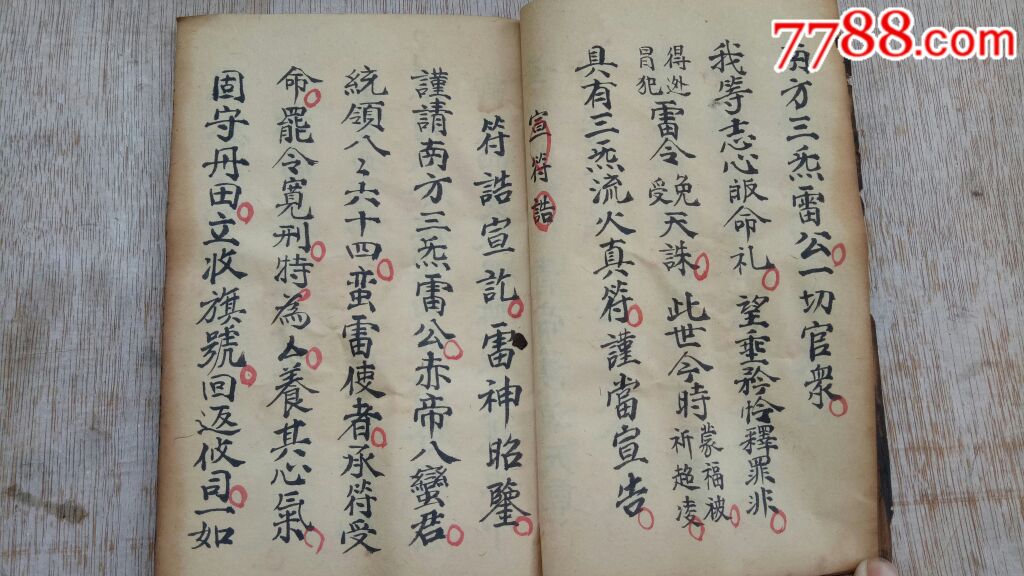 7788.com
南方三炁雷公一切官衆
我等志心皈命礼 望垂矜怜釋罪非
得遜冒犯雷令免受天誅 此世今時蒙福被祈趂凌
具有三炁流火真符謹當宣告
宣符誥
符誥宣訖雷神昭鑒
謹請南方三炁雷公赤帝八蠻君
統領八〻六十四蛮雷使者承符受
命罷令寬刑特為厶養其心氣
固守丹田立收旗號回返攸司一如